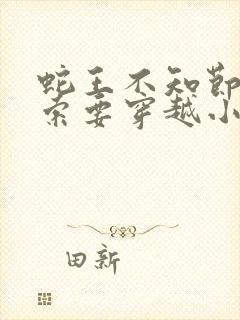 蛇王不知节
索要穿越小
田新